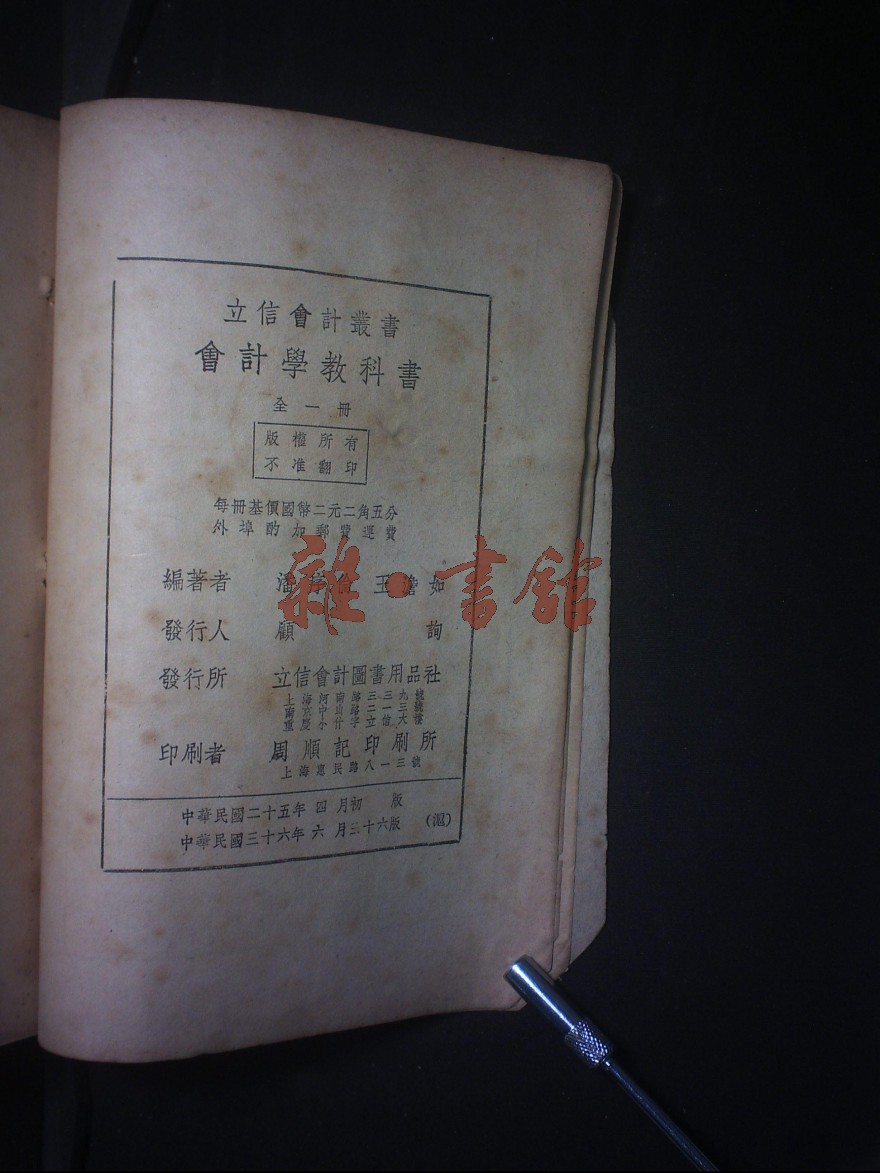 立信會計叢書
會計學教科書
全一冊
版權所有
不准翻印
每冊基價國幣二元二角五分
外埠酌加郵費運費
編著者 潘序倫 王澹如
發行人 顧詢
發行所 立信會計圖書用品社
上海河南路三三九號
南京中山路二一三號
重慶小什字立信大樓
印刷者 周順記印刷所
上海惠民路八一三號
中華民國二十五年四月初版
中華民國三十六年六月三十六版 (滬)
雜·書館